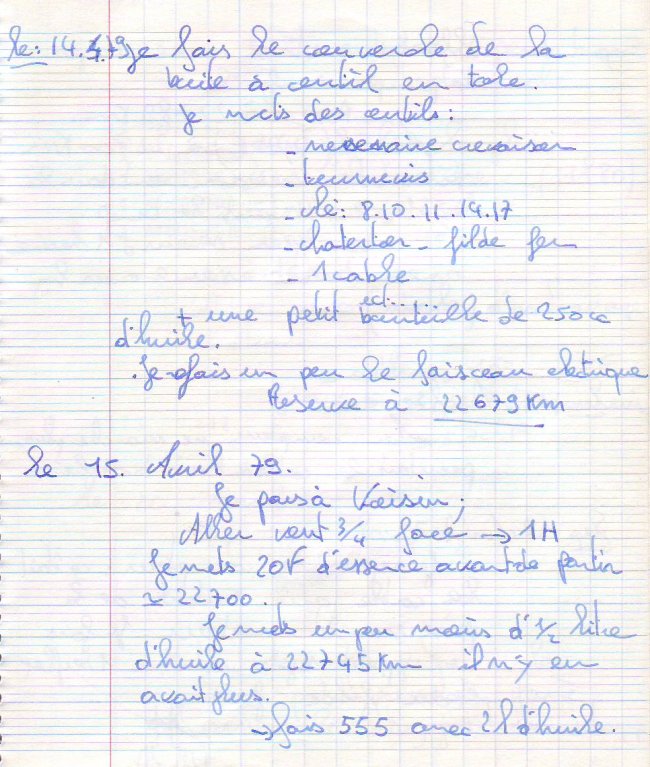 le: 14.4.79 je fais le couvercle de la
boite à outil en tole.
je mets des outils:
- necessaire crevaison
- tournevis
- clé: 8.10.11.14.17
- chaterton - fil de fer
- 1 cable
ect......
+ une petit bouteille de 250cc
d'huile.
. Je fais un peu le faisceau electrique
Reserve à 22679 Km
le 15. Avril 79.
Je pars à Voisin;
Aller vent 3/4 face → 1H
Je mets 20F d'essence avant de partir
≃ 22700.
Je mets un peu moins d'1/2 litre
d'huile à 22745 Km il n'y en
avait plus.
→ fais 555 avec 2l d'huile.